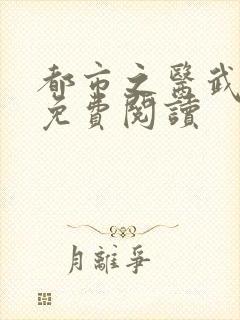 都市之醫武
免費閱讀
月離爭